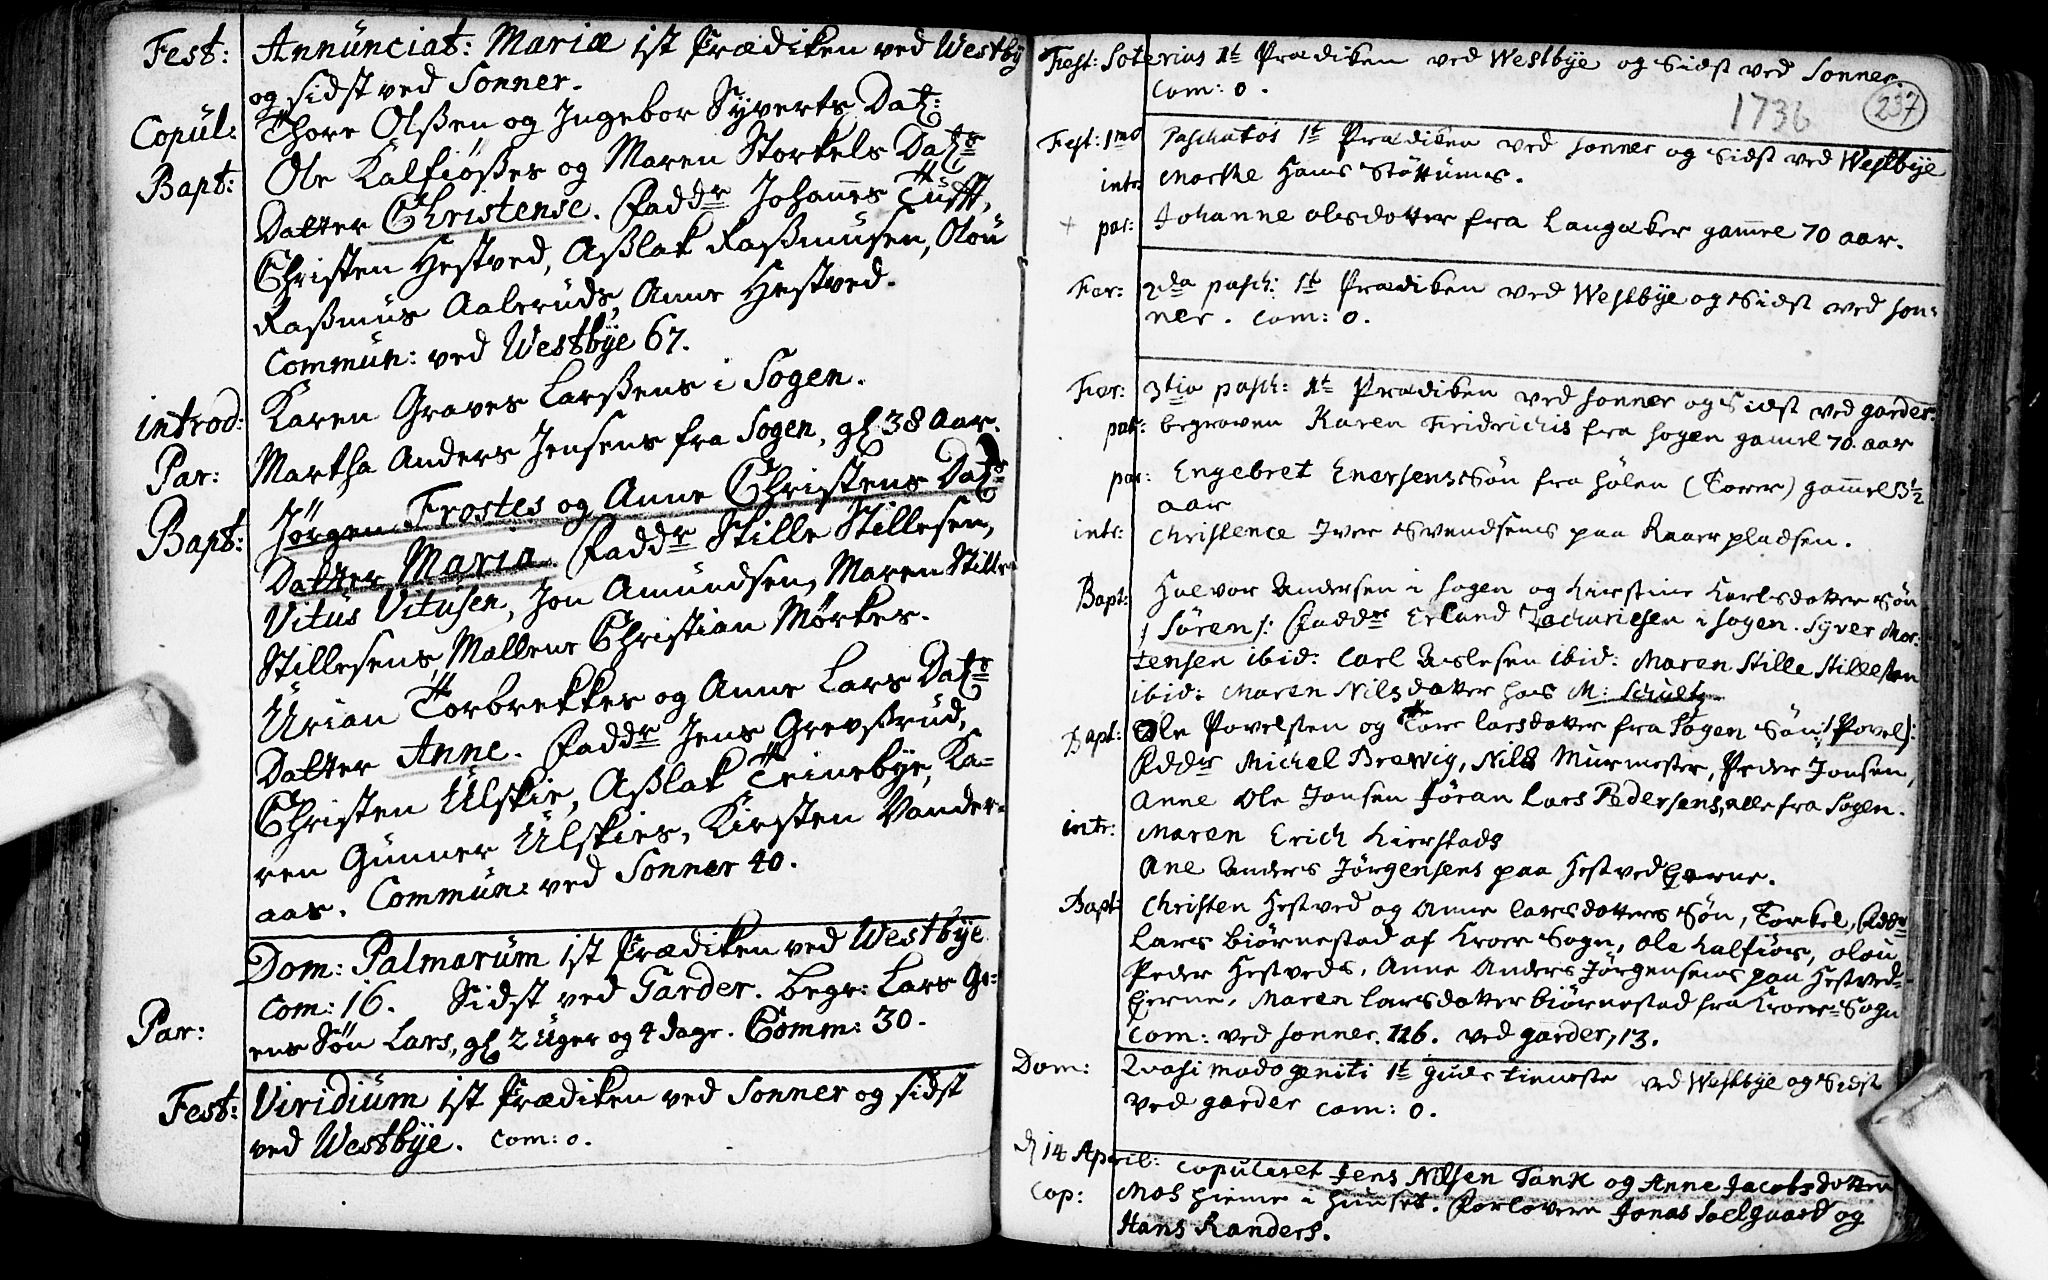 Fest: Annünciat: Mariæ 1st Prædiken ved Westby
og sidst ved Sonner.
Copül: Thore Olßen og Ingebor Syverts Dat:
Bapt: Ole Kalfiößes og Maren Storkels Datrs
Datter Christense. Faddr Johannes Tüfft,
Christen Hestved, Aßlak Raßmüsen, Olöu
Raßmüs Aalerüds, Anne Hestved.
Commün: ved Westbÿe 67.
introd: Karen Graves Larßens i Sogen.
Par: Martha Anders Jensens fra Sogen, gl 38 Aar.
Bapt: Jörgen Frostes og Anne Christens Datrs
Datter Maria. Faddr Stille Stillesen,
Vitüs Vitüsen, Jon Amündsen, Maren Stille
Stillesens, Mallene Christian Mörkes.
Urian Torbrekkes og Anne Lars Datrs
Datter Anne. Faddr Jens Grevßrüd,
Christen Ulskie, Aßlak Teinebÿe, Ka=
ren Günner Ulskies, Kirsten Vander=
aas. Commün: ved Sonner 40.
Dom: Palmarüm 1st Prædiken ved Westbÿe
Com: 16. Sidst ved Garder. begr: Lars Ge:
Par: ens Sön Lars, gl 2 Uger og 4 dage. Comm: 30.
Fest: Viridiüm 1st Prædiken ved Sonner og sidst
ved Westbÿe. Com: 0.
Fest: Soterius 1t Prædiken ved Westbÿe og Sidst ved Sonner.
Com: 0.
1736 237
Fest: 1mo Paschatos 1t Prædiken ved Sonner og Sidst ved Westbÿe
intr: Marthe Hans Stöttums.
+ par: Johanne olsdatter fra Langaker gammel 70 aar.
Fær: 2da pasch: 1t Prædiken ved Westbÿe og Sidst ved Son:
ner. Com: 0.
Fær: 3tia pasch: 1t Prædiken ved Sonner og Sidst ved garder.
par: begraven Karen Fridrichis fra Sogen gamel 70. aar
par: Engebret Enersens Sön fra hölen (Torer) gammel 3 1/2
aar
intr: Christence Iver Svendsens paa Raaer pladsen.
Bapt: Halvor Andersen i Sogen og Kirstine Karlsdatter Sön
/ Sören /: Faddr Erland Zachariesen i Sogen. Syver Mor:
tensen ibid: Carl Aslesen ibid: Maren Stille Stillesten
ibid: Maren Nilsdatter hos M: Schultz
Bapt: Ole Povelsten og Tore larsdatter fra Sogen Sön / Povel /:
Fddr Michel Brewig, Nils Murmester, Peder Jonsen,
Anne Ole Jonsen Jöran Lars Pedersens, alle fra Sogen.
intr: Maren Erich Kierstads
Ane Anders Jörgensens paa Hestved Eierne.
Bapt: Christen Hestved og Anne larsdatters Sön, Torkel, Fddr
Lars biörnestad af Kroer Sogn, Ole Kalfiös, Olöu
Peder Hestveds, Anne Anders Jörgensens paa Hestved-
Eierne, Maren larsdatter biörnestad fra Kroer-Sogn
Com: ved Sonner. 126. ved garder, 13.
Dom: Qvasi modo geniti 1t gudstieneste ved Westbÿe og Sidst
ved garder Com: 0.
d 14 April: Copuleret Jens Nilsen Tank og Anne Jacobsdatter
Cop: Mos hieme i huuset. Forlovere Jonas Soelgaard og
Hans Randers.